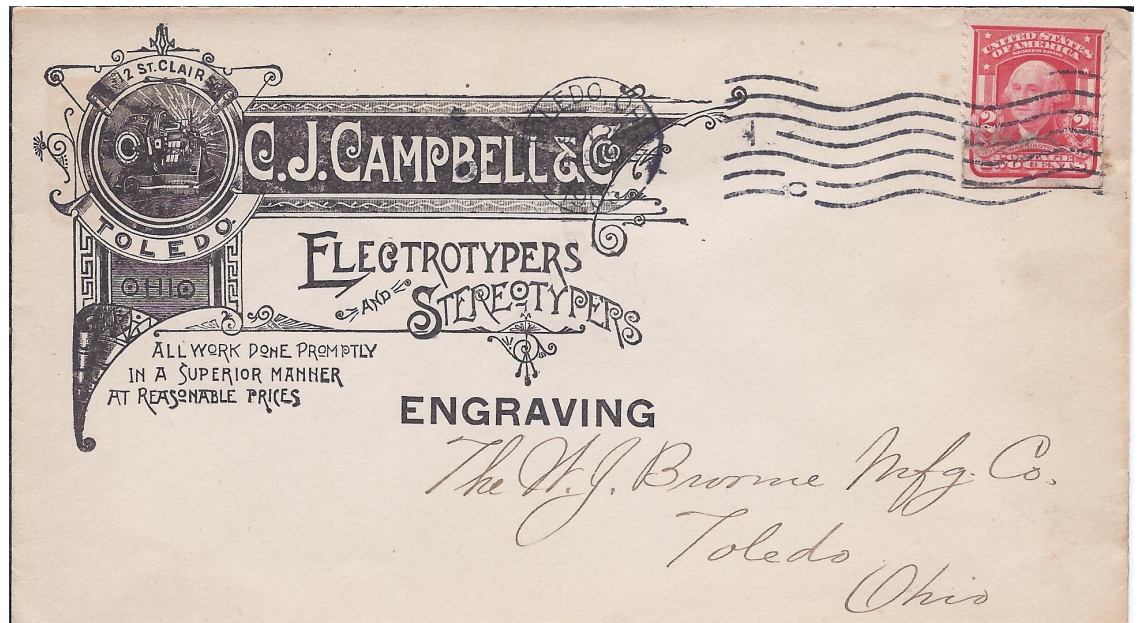 12 ST. CLAIR
C. J. CAMPBELL & Co
TOLEDO.
OHIO
ELECTROTYPERS
AND
STEREOTYPERS
ALL WORK DONE PROMPTLY
IN A SUPERIOR MANNER
AT REASONABLE PRICES
ENGRAVING
TOLEDO, O
UNITED STATES
OF AMERICA
SERIES 1902
2 2
POSTAGE
TWO CENTS
The W. J. Broome Mfg. Co.
Toledo
Ohio